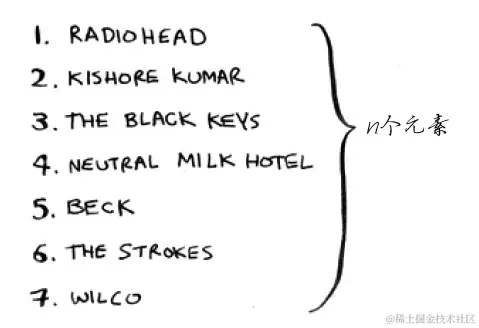 1. RADIOHEAD
2. KISHORE KUMAR
3. THE BLACK KEYS
4. NEUTRAL MILK HOTEL
5. BECK
6. THE STROKES
7. WILCO
n个元素
@稀土掘金技术社区